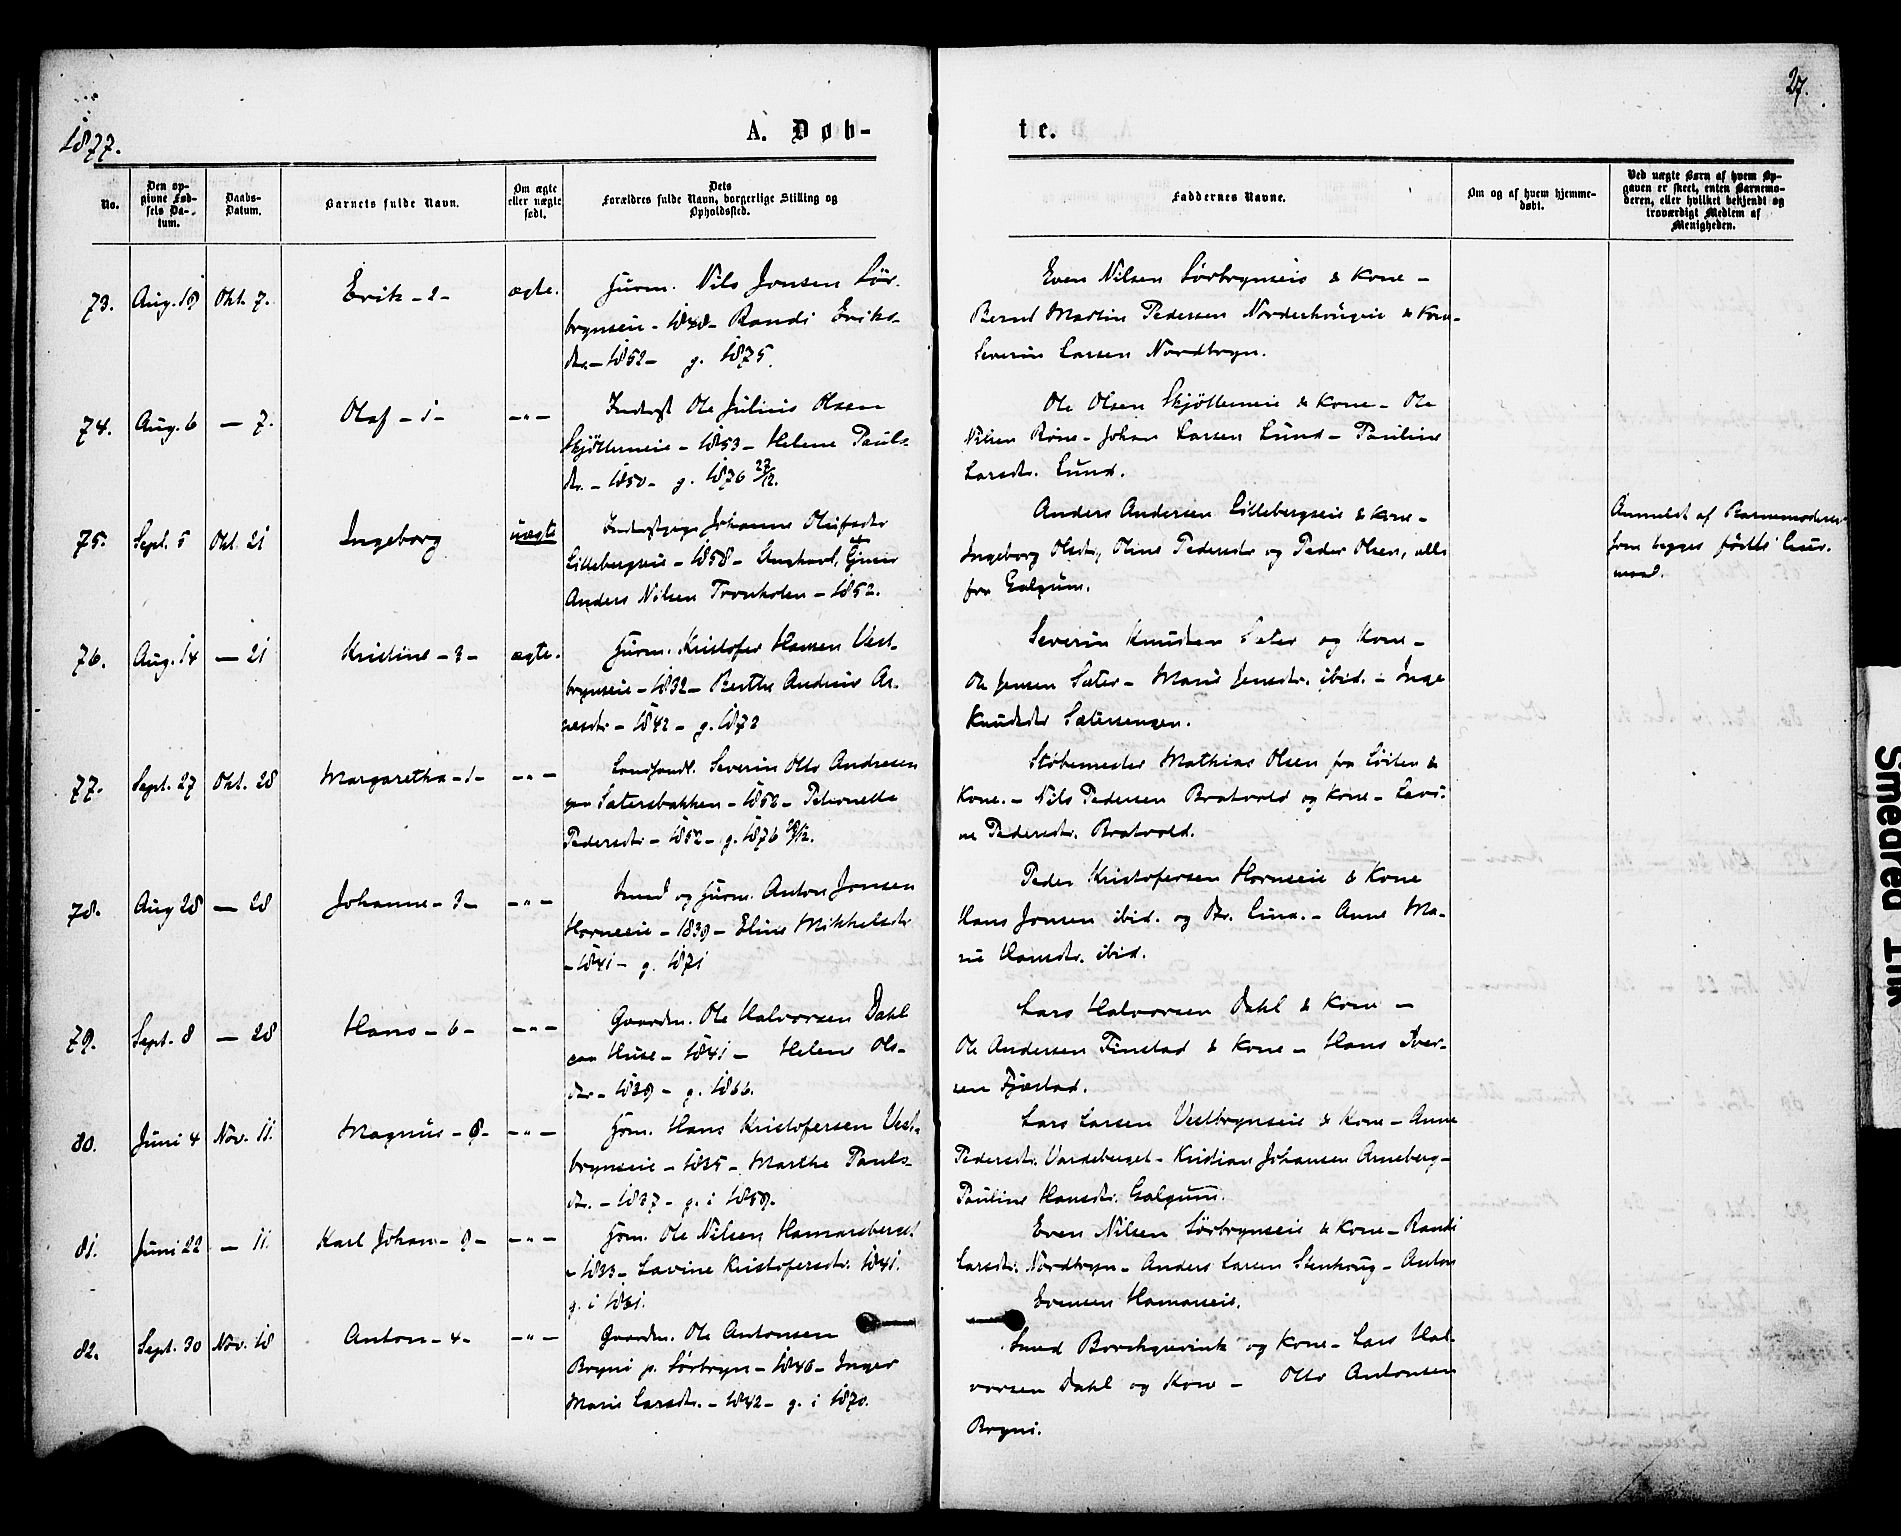 1877.
A. Døb-
te.
27.
No.
Den op-
givne Fød-
sels Da-
tum.
Daabs-
Datum.
Barnets fulde Navn.
Om ægte
eller uægte
født.
Dets
Forældres fulde Navn, borgerlige Stilling og
Opholdssted.
Faddernes Navne.
Om og af hvem hjemme-
døbt.
Ved uægte Børn af hvem Op-
gaven er skeet, enten Barnemo-
deren, eller hvilket bekjendt og
troværdigt Medlem af
Menigheden.
73. Aug. 19 Okt. 7. Erik - 2 - ægte. Husm. Nils Jonsen Sör-
brynseie - 1848 - Randi Eriks-
dr. - 1852 - g. 1875.
Even Nilsen Sörbrynseie & Kone -
Bernt Martin Pedersen Norderhougeie & Kone
Severin Larsen Nordbryn.
74. Aug. 6 - 7. Olaf - 1 - - " - Inderst Ole Julius Olsen
Skjöllerneie - 1853 - Helene Pauls-
dr. - 1850 - g. 1876 27/12.
Ole Olsen Skjöllerneie & Kone - Ole
Nilsen Röne - Johan Larsen Lund - Pauline
Larsdr. Lund.
75. Sept. 5 Okt. 21 Ingeborg uægte Johanne
Lillebergseie - 1858 - Ungkarl,
Anders Nilsen Tronholen - 1852.
Anders Andersen Lillebergseie & Kone -
Ingeborg Olsdr, Oline Pedersdr og Peder Olsen, alle
fra Galgum.
Anmeldt af Barnemoderen
som begges förste Leier-
maal.
76. Aug. 14 - 21 Kristine - 3 - ægte. Husm. Kristofer Hansen Vest-
brynseie - 1832 - Berthe Andrine Ar-
nesdr - 1842 - g. 1872
Severin Knudsen Sæter og Kone -
Ole Jensen Sæter - Marie Jensdr. ibid. - Inge
Knudsdr Sætersengen.
77. Sept. 27 Okt. 28 Margaretha - 1 - - " - Landhandl. Severin Otto Andresen
paa Sætersbakken - 1850 - Petronelle
Pedersdr - 1852 - g. 1876 28/12.
Støbemester Mathias Olsen fra Löiten &
Kone. - Nils Pedersen Bratvold og Kone - Lovi-
ne Pedersdr. Bratvold.
78. Aug 28 - 28 Johanne - 3 - - " - Smed og Husm. Anton Jonsen
Horneeie - 1839 - Eline Mikkelsdr
- 1841 - g. 1871
Peder Kristofersen Horneeie & Kone
Hans Jonsen ibid. og Dr. Lina. - Anne Ma-
rie Hansdr. ibid.
79. Sept. 8 - 28 Hans - 6 - - " - Gaardm. Ole Halvorsen Dahl
paa Huse - 1841 - Helene Ols-
dr. - 1839 - g. 1866.
Lars Halvorsen Dahl & Kone -
Ole Andersen Finstad & Kone - Hans Iver-
sen Fjæstad.
80. Juni 4 Nov. 11. Magnus - 8 - - " - Hsm. Hans Kristofersen Vest-
brynseie - 1835 - Marthe Pauls-
dr. - 1837 - g. i 1859.
Lars Larsen Vestbrynseie & Kone - Anne
Pedersdr. Vardeberget - Kristian Johansen Anneberg -
Pauline Hansdr. Galgum.
81. Juni 22 - 11. Karl Johan - 9 - - " - Hsm. Ole Nilsen Hamarsberget
- 1833 - Lavine Kristofersdr. 1841.
g. i 1861.
Even Nilsen Sörbrynseie & Kone - Randi
Larsdr. Nordbryn - Anders Larsen Stenhoug - Anton
Evensen Hamareie.
82. Sept. 30 Nov. 18 Anton - 4 - - " - Gaardm. Ole Antonsen
Bryni p. Sörbryn - 1846 - Inger
Marie Larsdr. - 1842 - g. i 1870.
Smed Borchgrevink og Kone - Lars Hal-
vorsen Dahl og Kone - Otto Antonsen
Bryni.
Smedred Ink